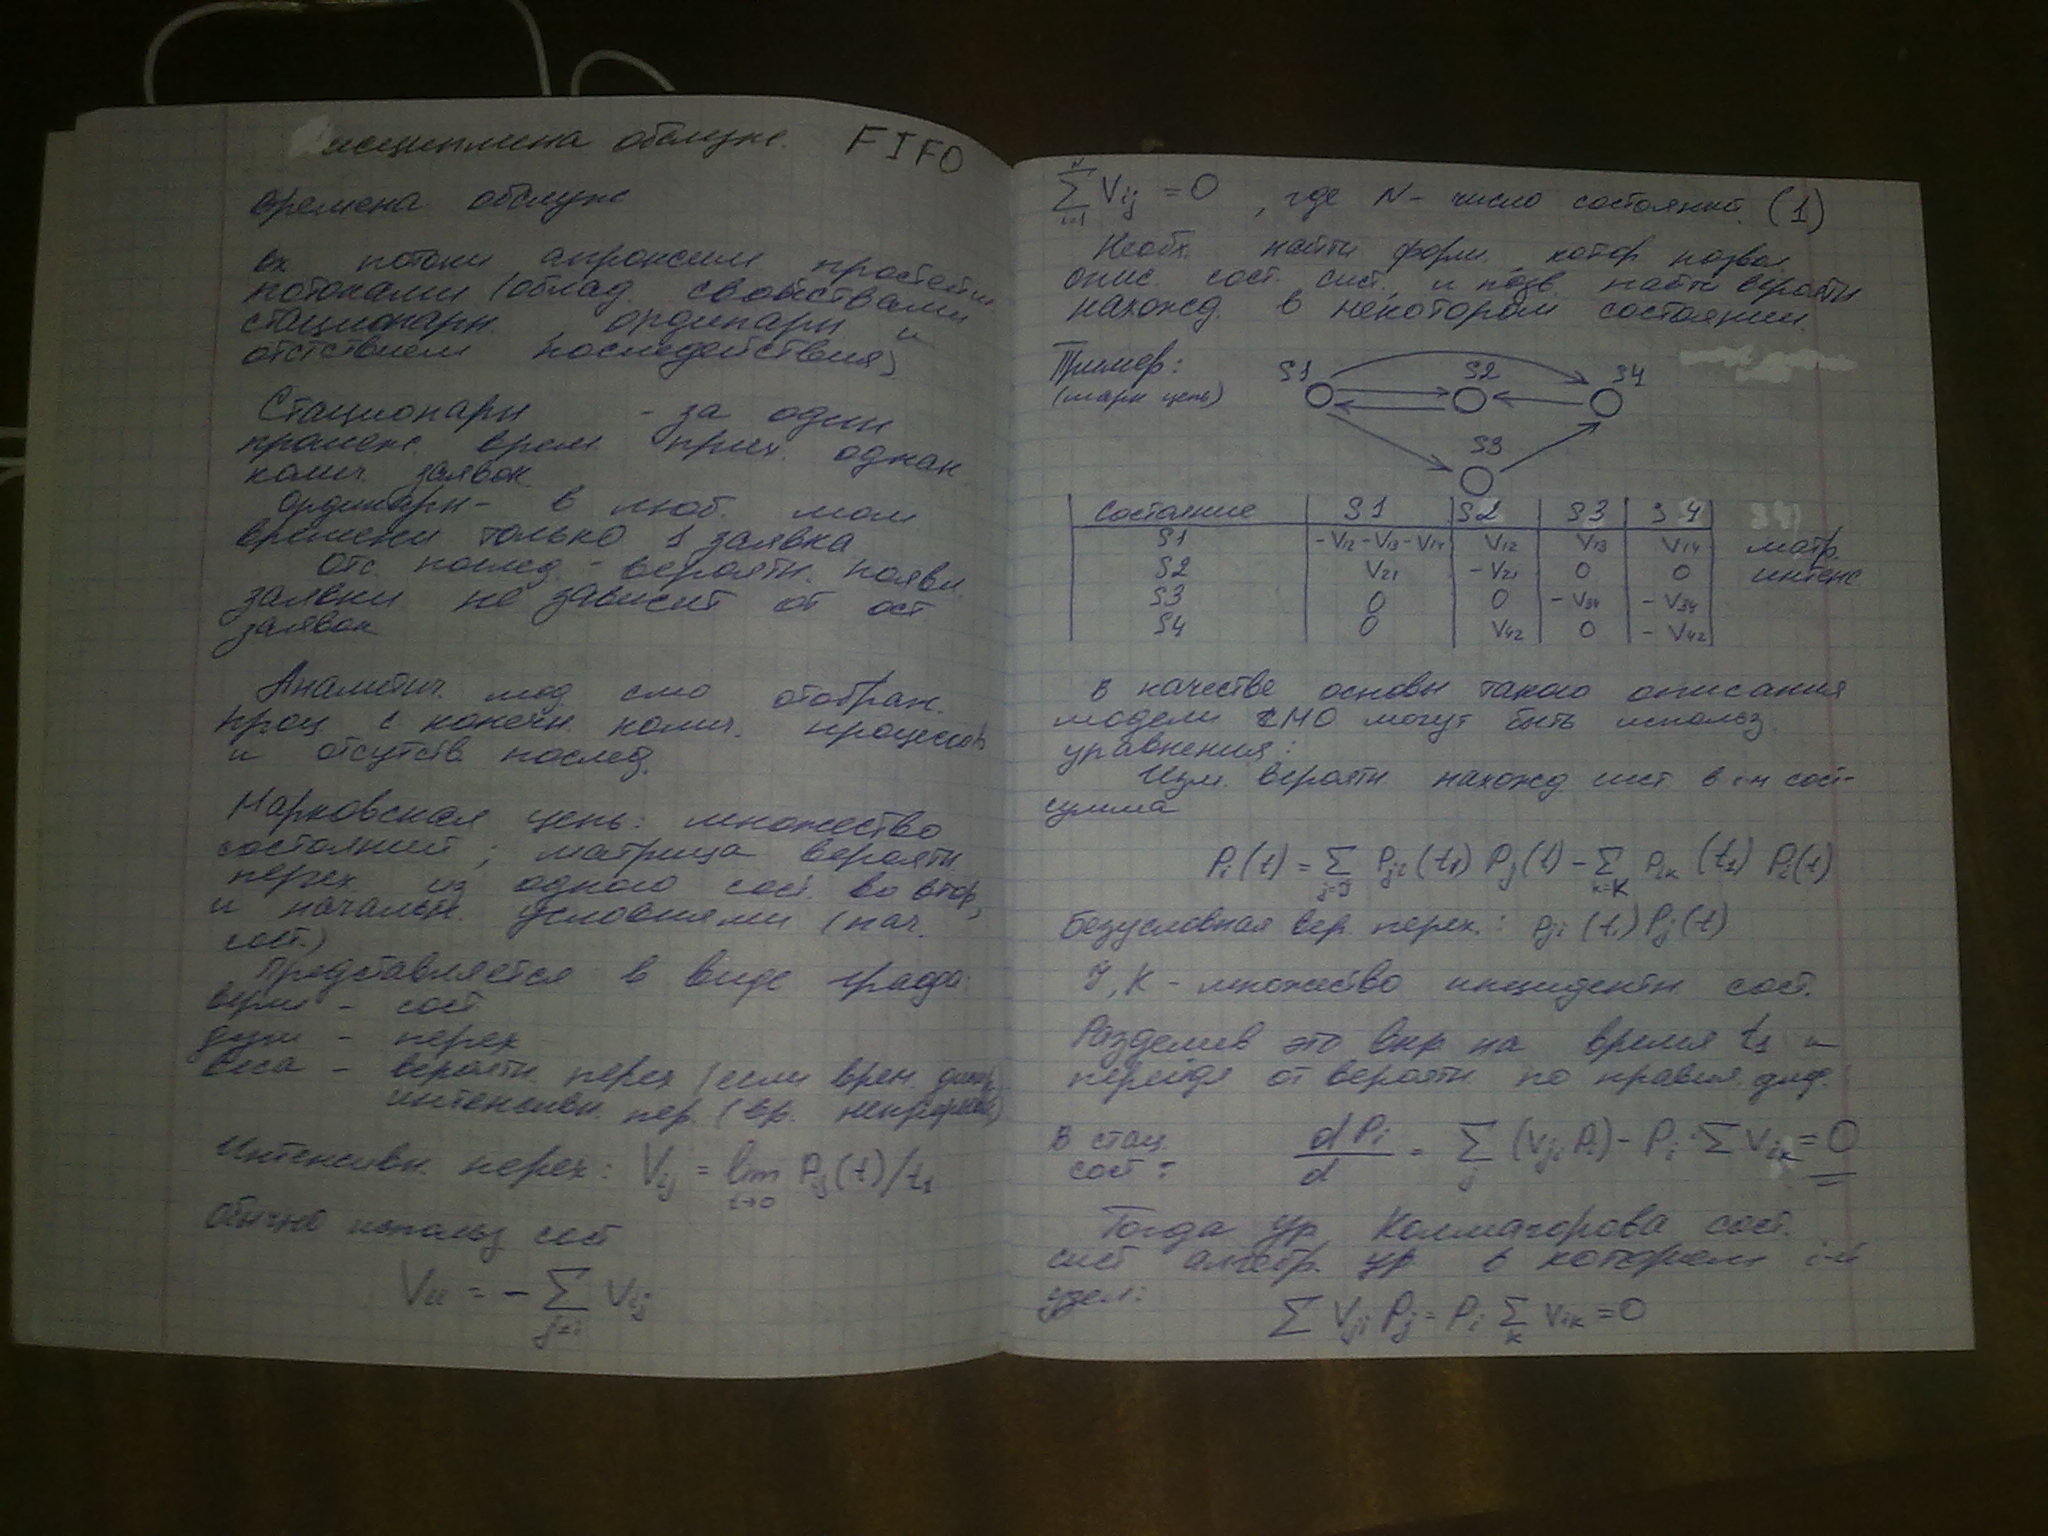 исциплина обслуж. FIFO
времена обслуж
вх потоки апроксим простейш
потоками (облад. свойствами
стационарн. , ординарн и
отстствием последействия)
Стационарн - за один
промеж. врем. прих. однак
колич. заявок
ординарн - в люб. мом
времени только 1 заявка
отс. послед. - вероятн. появл.
заявки не зависит от ост
заявок
Аналитич. мод смо отображ.
проц с конечн. колич. процессов
и отсутств. послед.
Марковская цепь: множество
состояний; матрица вероятн.
перех. из одного сост. во втор,
и начальн. условиями (нач.
сост.)
Представляется в виде графа:
верш - сост
дуги - перех
веса - вероятн. перех (если врем. дискр.
интенсивн. пер. (вр. непрерывн)
Интенсивн. перех: Vij = lim τ→0 Pij(t)/t1
Обычно использ сост
Vii = - Σ j≠i Vij
N Σ i=1 Vij = 0 , где N - число состояний. (1)
Необх. найти форм. котор позвол.
опис. сост. сист., и позв. найти вероятн
нахожд. в некотором состоянии.
Пример: S1 S2 S4
(марк цепь)
S3
состояние | S1 | S2 | S3 | S4
S1 | -V12-V13-V14 | V12 | V13 | V14 | матр
S2 | V21 | -V21 | 0 | 0 интенс
S3 | 0 | 0 | -V34 | -V34
S4 | 0 | V42 | 0 | -V42
В качестве основы такого описания
модели СМО могут быть использ.
уравнения:
Изм. вероятн нахожд сист в i-м сост-
сумма
Pi(t) = Σ j=J Pji(t1) Pj(t) - Σ k=K Pik(t1) Pi(t)
Безусловная вер. перех.: Pji(t1) Pj(t)
J, K - множество инцидентн сост.
Разделив это выр на время t1 и
перейдя от вероятн по правил. диф.
В стац. dPi/d = Σ j (Vji Pi) - Pi · Σ Vik = 0
сост:
Тогда ур Колмагорова сост.
сист алгебр. ур в котором i-й
узел:
Σ Vji Pj - Pi Σ k Vik = 0